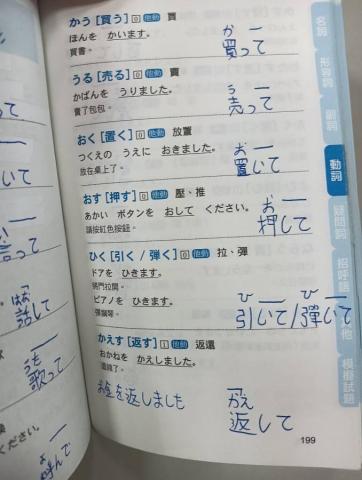 かう [買う] 0 他動 買
ほんを かいます。
買書。
か
買って
うる [売る] 0 他動 賣
かばんを うりました。
賣了包包。
う
売って
おく [置く] 0 他動 放置
つくえの うえに おきました。
放在桌上了。
お
置いて
おす [押す] 0 他動 壓、推
あかい ボタンを おして ください。
請按紅色按鈕。
お
押して
ひく [引く / 弾く] 0 他動 拉、彈
ドアを ひきます。
將門拉開。
ピアノを ひきます。
彈鋼琴。
ひ ひ
引いて/弾いて
かえす [返す] 1 他動 返還
おかねを かえしました。
還錢了。
お金を返しました
かえ
返して
199
名詞
形容詞
副詞
動詞
疑問詞
招呼語
其他
模擬試題
って
いて
って
はな
話して
うた
歌って
ください。
よ
呼んで